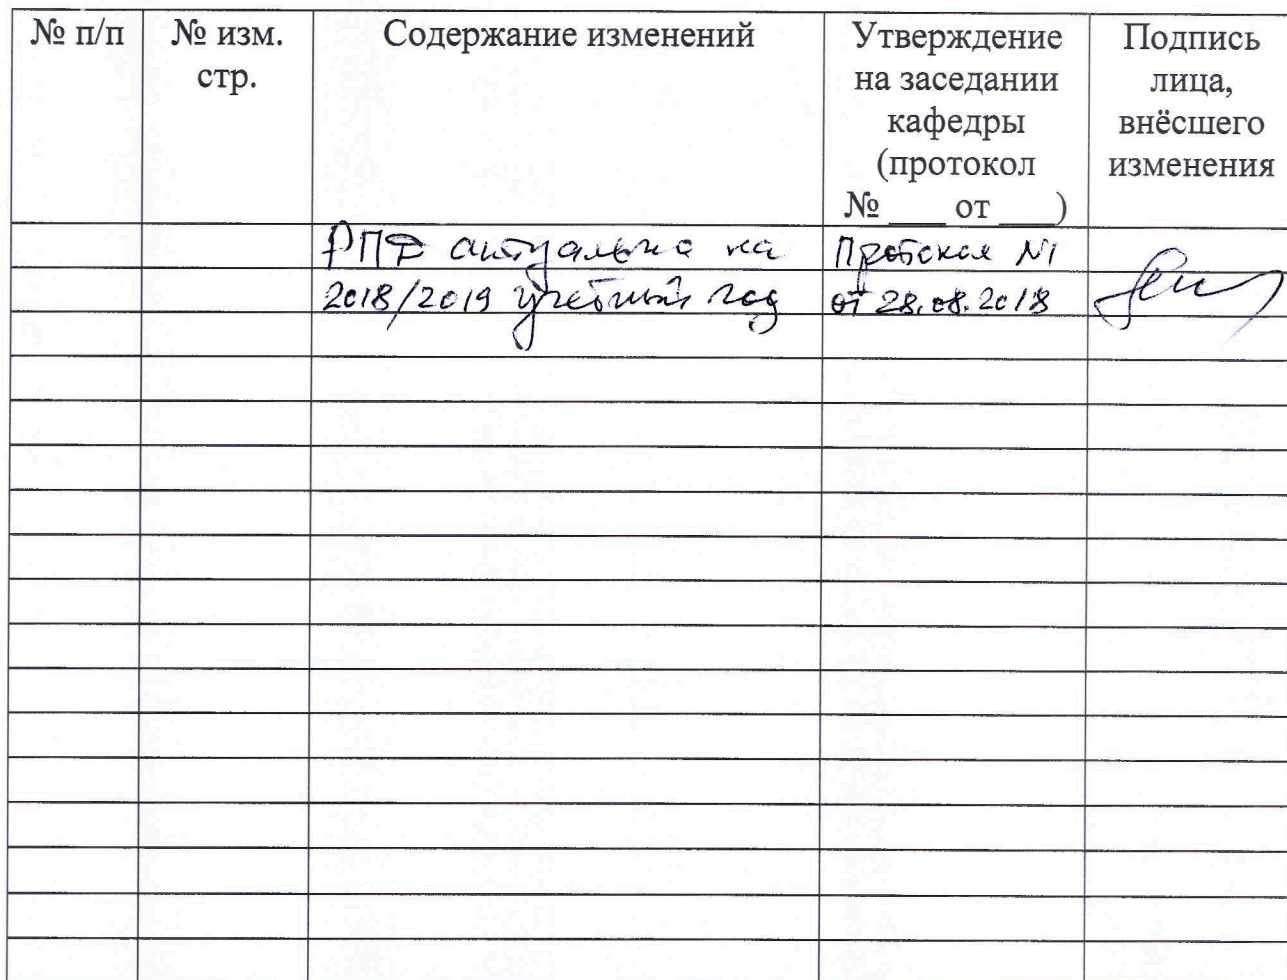 № п/п
№ изм.
стр.
Содержание изменений
Утверждение
на заседании
кафедры
(протокол
№ ____ от ____)
Подпись
лица,
внёсшего
изменения
РПД актуальна на
2018/2019 учебный год
Протокол №1
от 28.08.2018